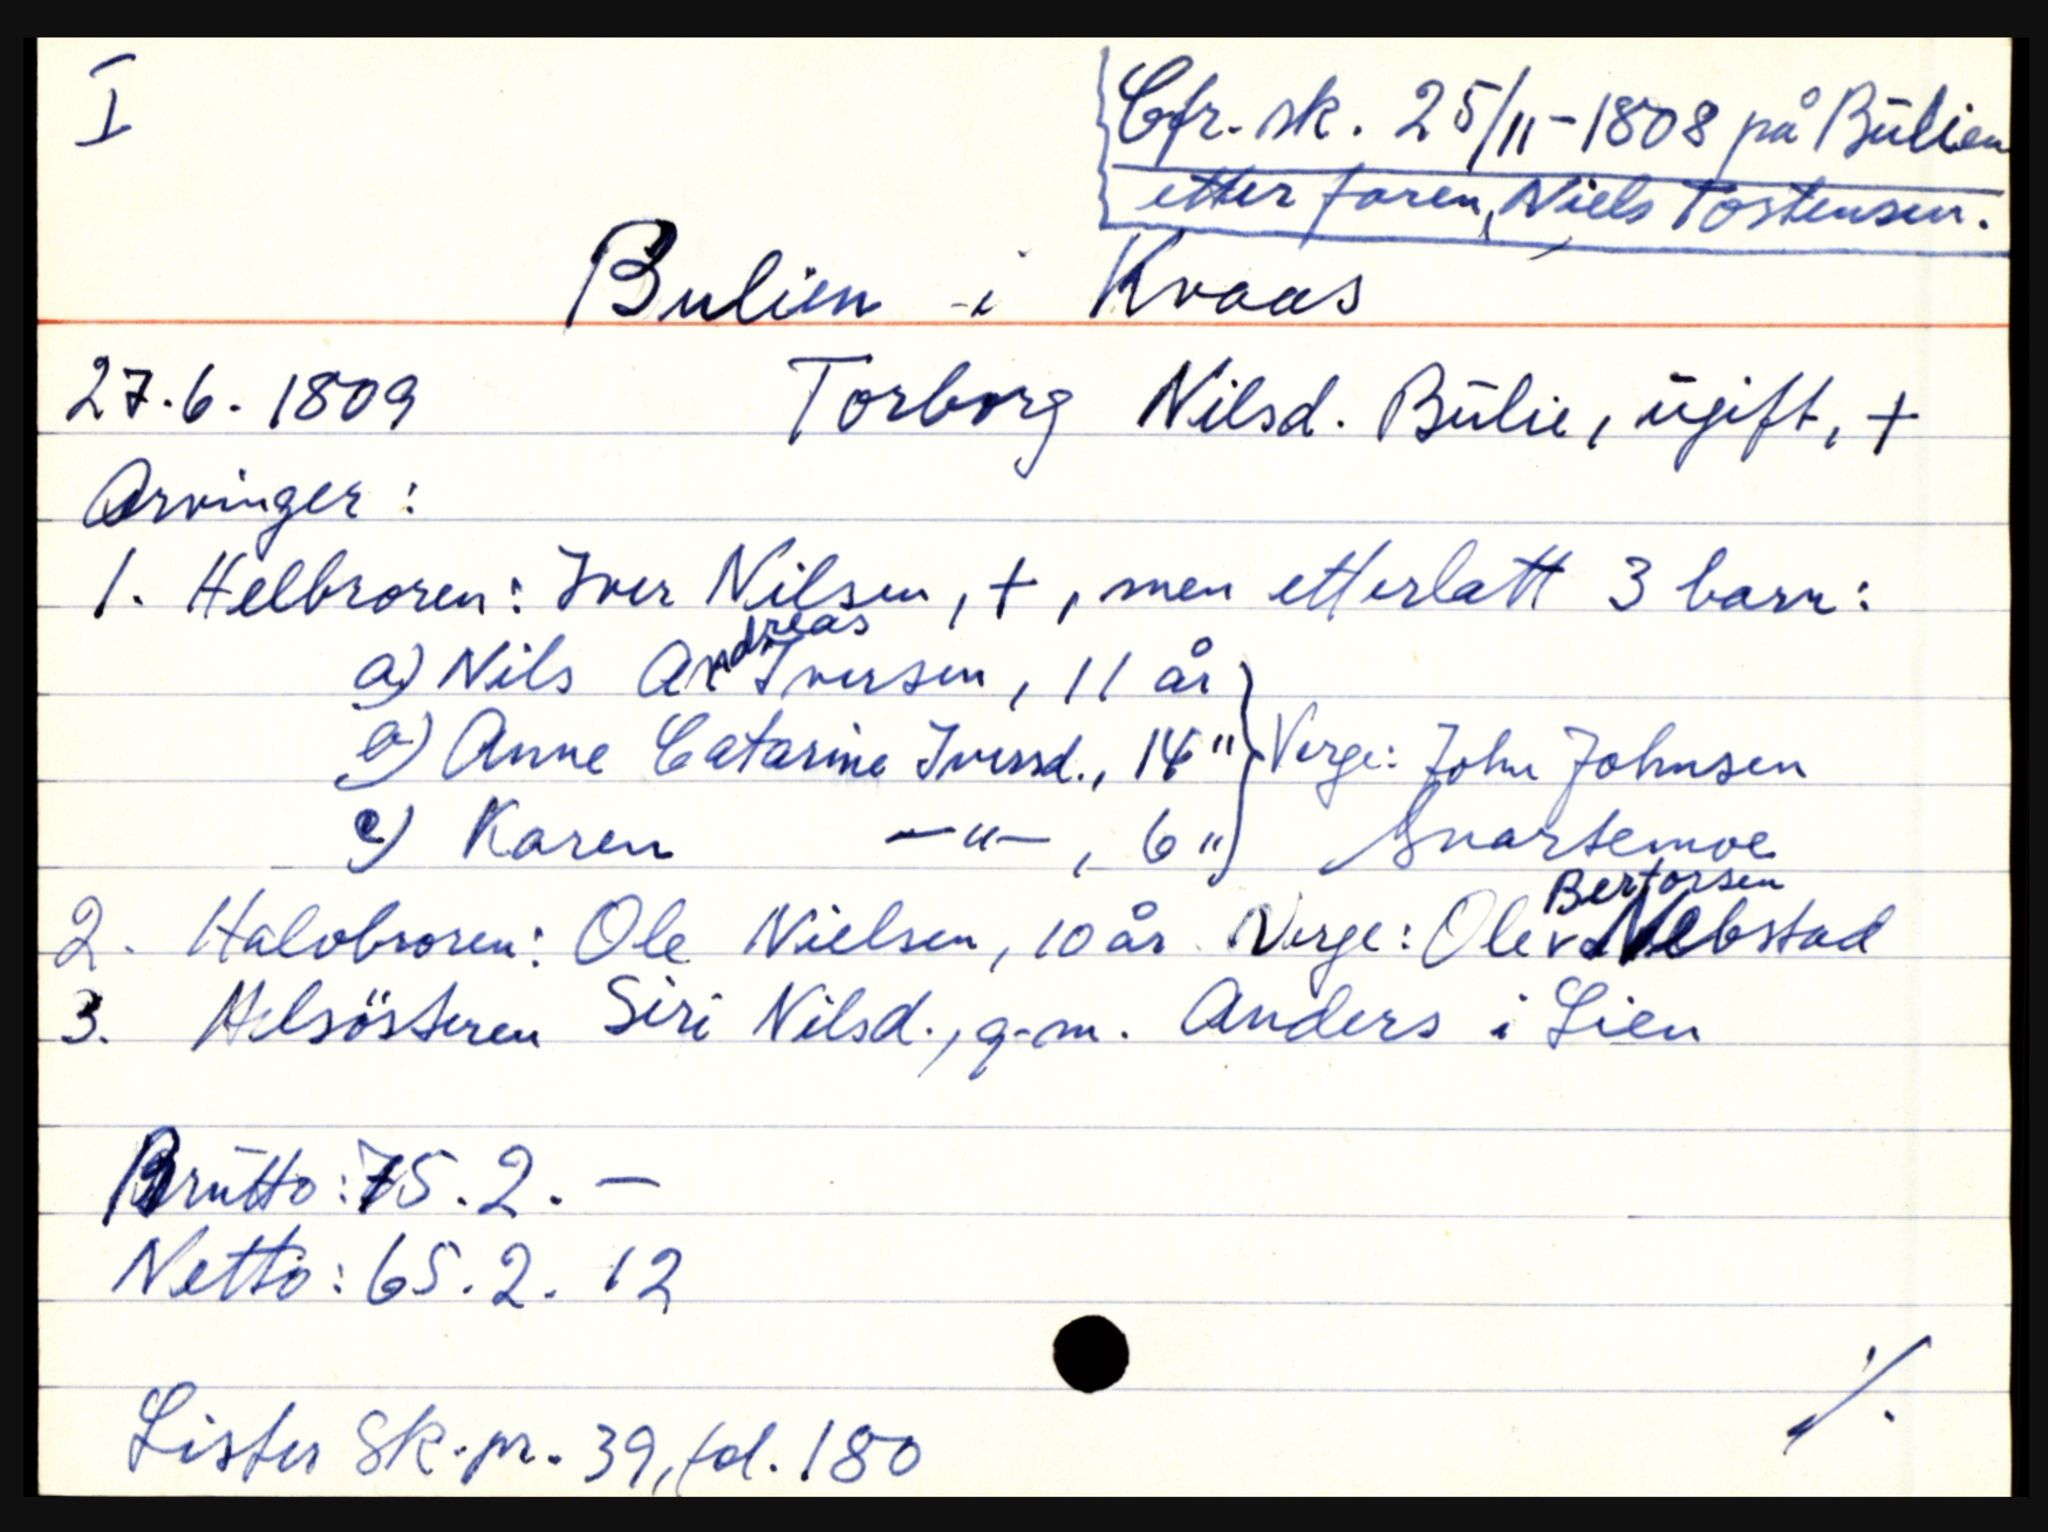 I
Cfr. sk. 25/11-1808 på Būlien
etter faren, Niels Tostensen.
Bulien - i Kvaas
27.6.1809 Torborg Nilsd. Būlie, ūgift, +
Arvinger:
1. Helbroren: Iver Nilsen, +, men etterlatt 3 barn:
a) Nils Andreas Iversen, 11 år
b) Anne Catarine Iversd., 14 " Verge: John Johnsen
c) Karen —"—, 6 " Snartemoe
2. Halvbroren: Ole Nielsen, 10 år. Verge: Ole Bertorsen Nebstad
3. Helsösteren Siri Nilsd., g.m. Anders i Lien
Brūtto: 75.2. —
Netto: 65.2. 12
Lister Sk.pr. 39, fol. 180
./.